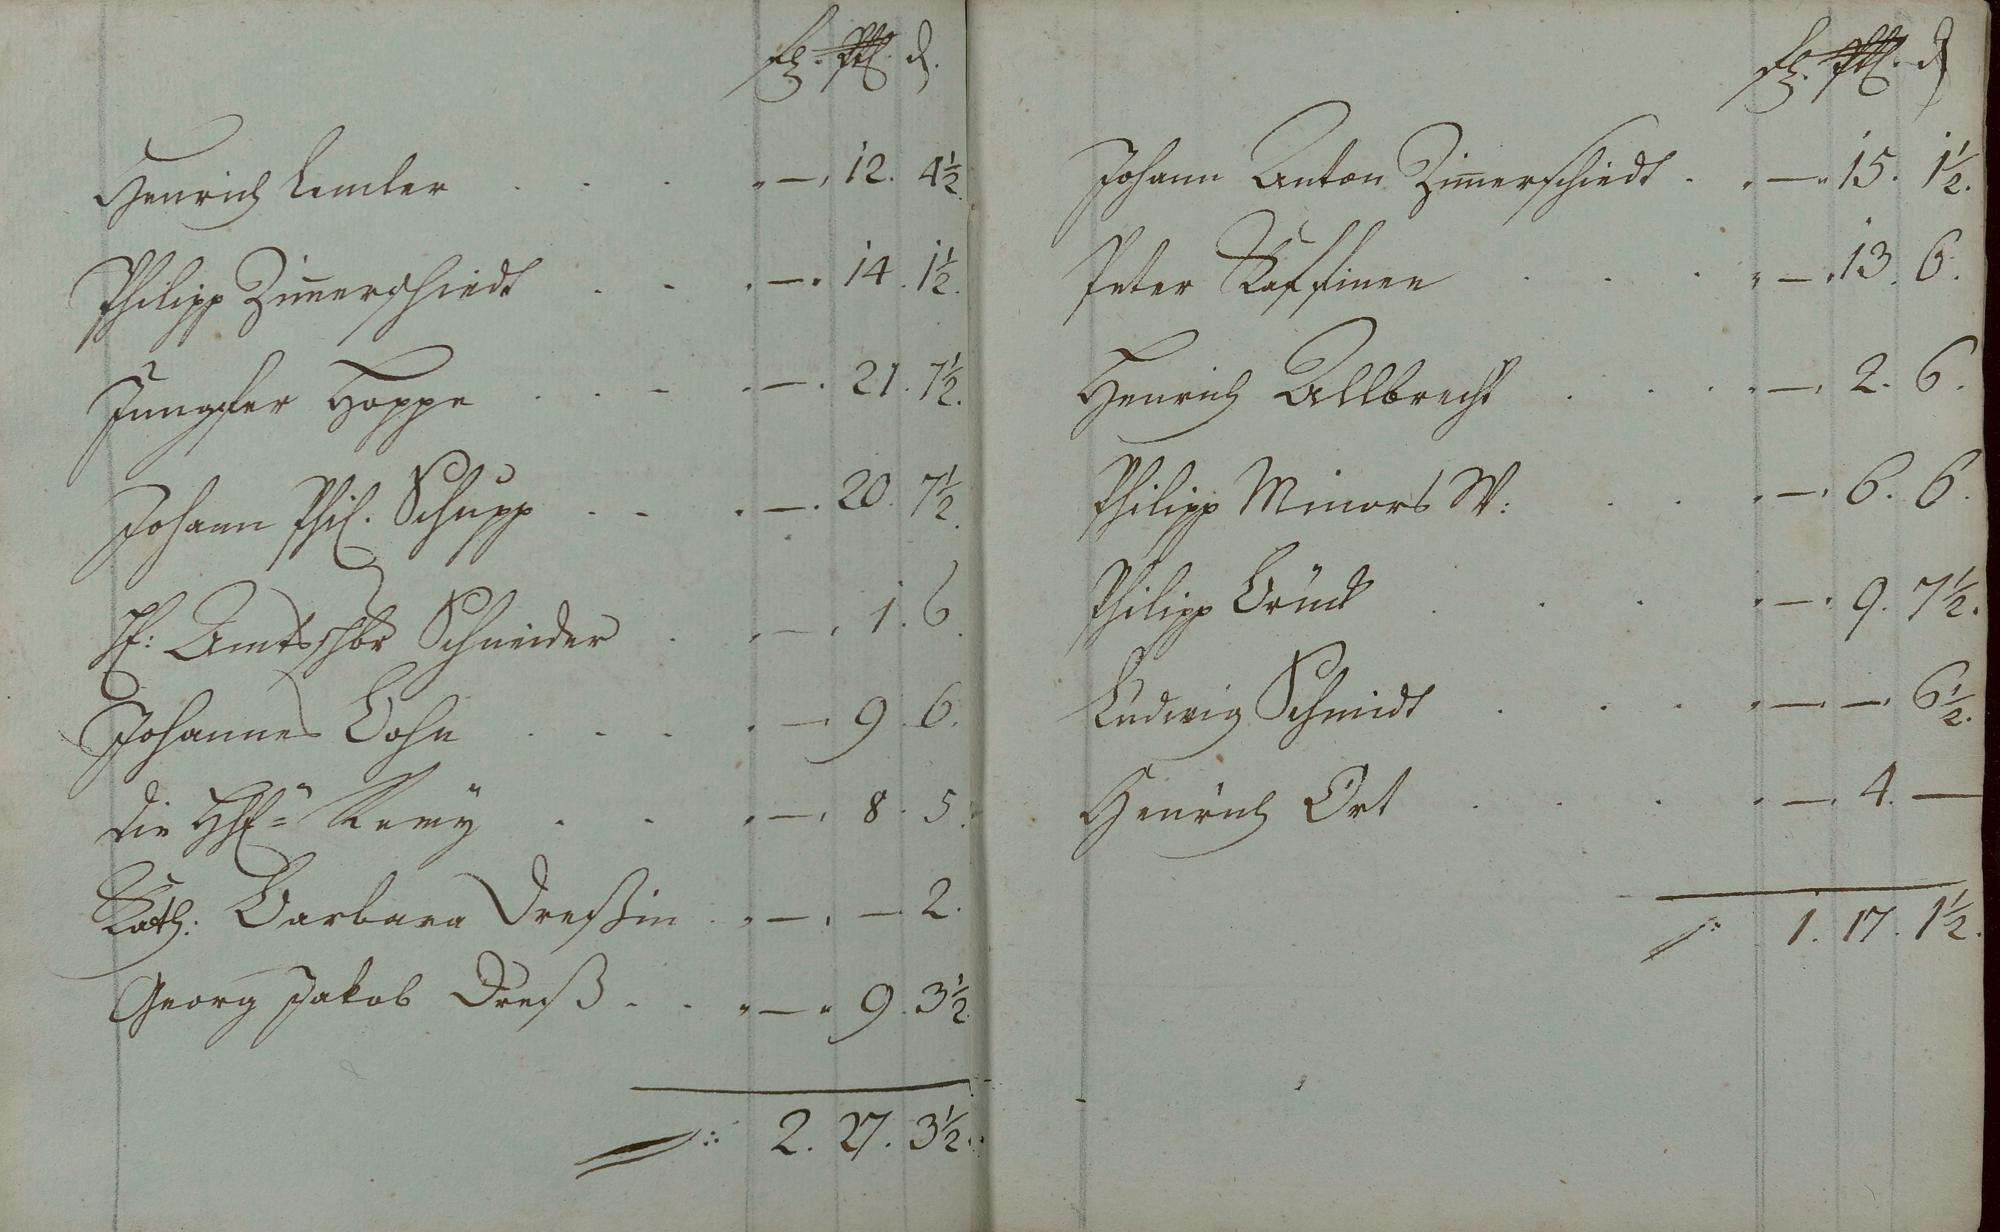 Henrich Lemler . . . . — . 12. 4½.
Philipp Zimerschiedt . . . — . 14. 1½.
Jungfer Hoppe . . . . — . 21. 7½.
Johann Phil. Schupp . . . — . 20. 7½.
H: Amtsschbr Schneider . . — . 1. 6.
Johannes Bohn . . . . — . 9. 6.
die HH. Remy . . . — . 8. 5.
Kath: Barbara Dreßin . . — . — 2.
Georg Jakob Dreß . . . — . 9. 3½.
2. 27. 3½.
Johann Anton Zimerschiedt . . — . 15. 1½.
Peter . . . . — . 13. 6.
Henrich Allbrecht . . . . — . 2. 6.
Philipp Minors W: . . . — . 6. 6.
Philipp Brück . . . . — . 9. 7½.
Ludwig Schmidt . . . . — . — . 6½.
Henrich Ort . . . . — . 4. —
1. 17. 1½.